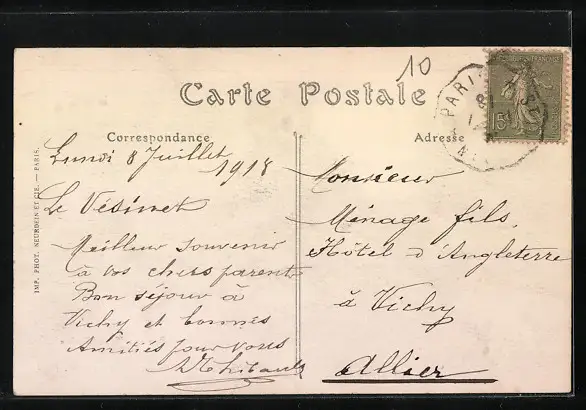 10
Carte Postale
Correspondance
Adresse
Lundi 8 Juillet
1918
Le Vésinet
Meilleur souvenir
à vos chers parents
Bon séjour à
Vichy et bonnes
Amitiés pour vous
Monsieur
Ménage fils,
Hôtel d'Angleterre
à Vichy
Allier
IMP. PHOT. NEURDEIN ET CIE. — PARIS.
PARIS
15c